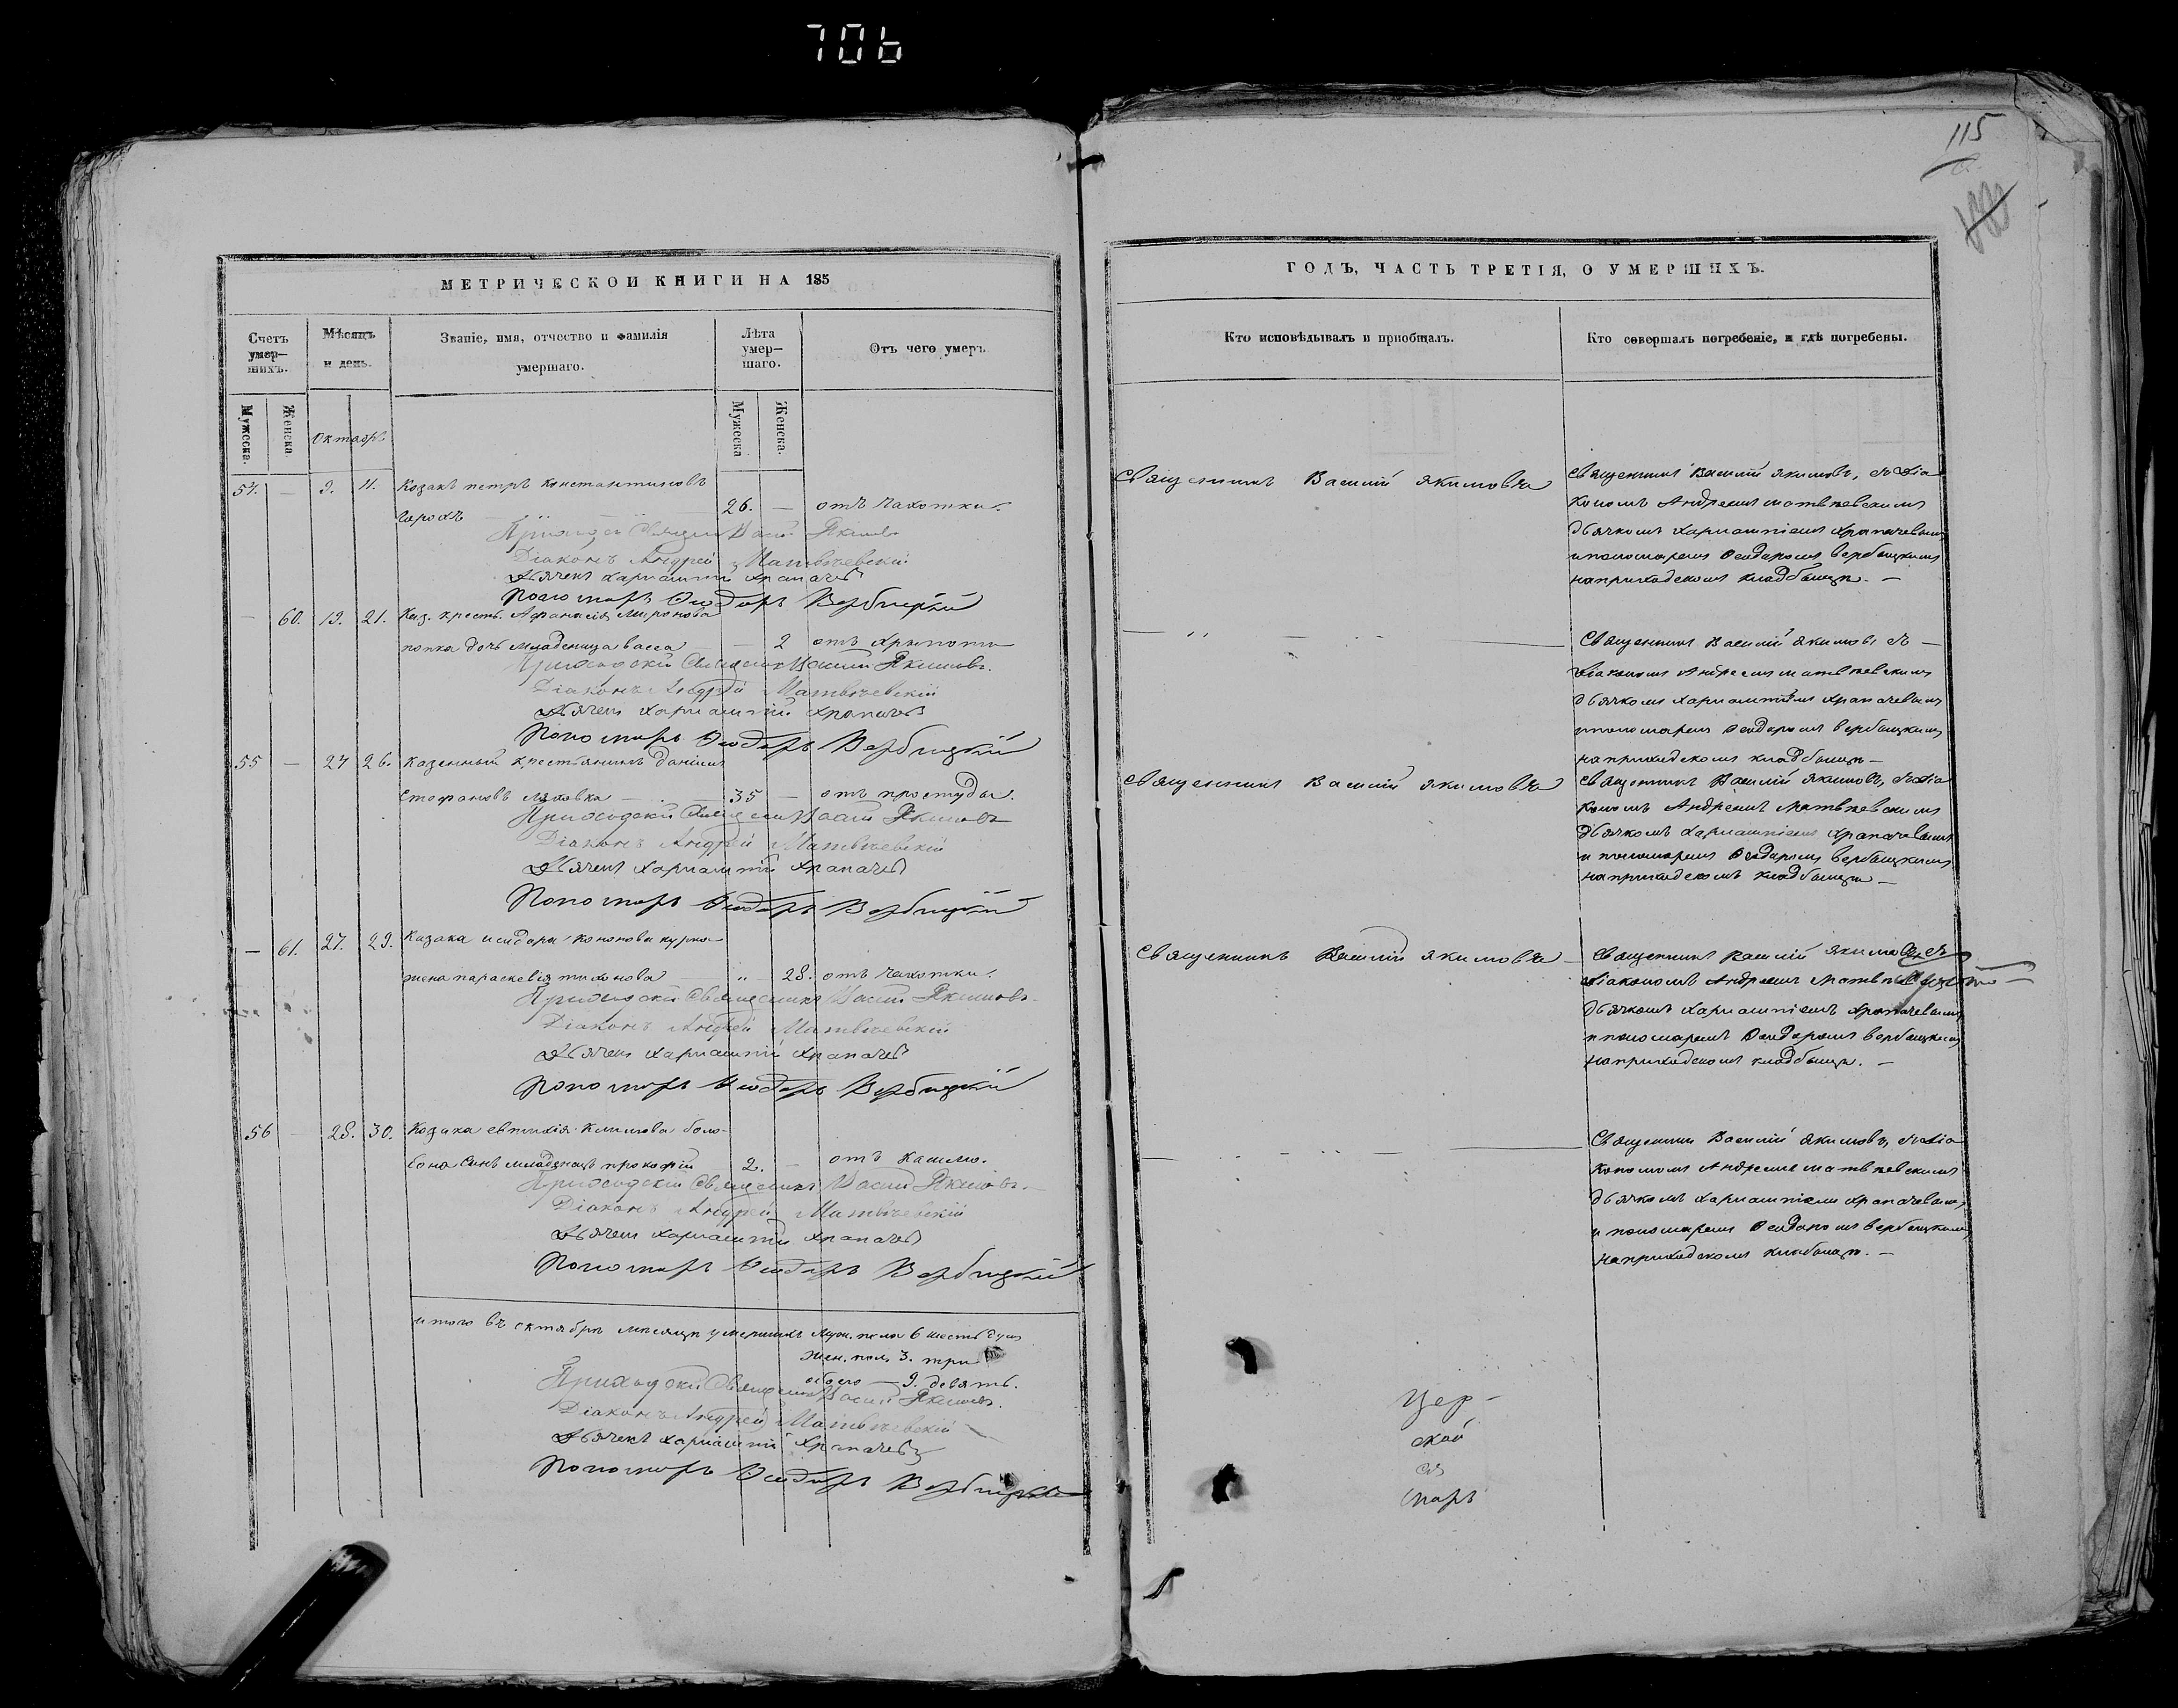 706
115
МЕТРИЧЕСКОЙ КНИГИ НА 185
Счетъ умер-шихъ.
Мѣсяцъ и день.
Званіе, имя, отчество и фамилія умершаго.
Лѣта умер-шаго.
Отъ чего умеръ
Мужеска.
Женска.
Октябрь
Мужеска
Женска.
54. — 9. 11. Козакъ петръ Константиновъ
26. — отъ чахотки.
Священ Васи Якимовъ
Діаконъ Андрей Матвѣевскій
Дьячекъ Харлампій Храпачевъ
Пономарь Ѳеодоръ Вербицкій
— 60. 19. 21. Каз. кресть. Афанасія Миронова
попка дочь младеница васса — 2 отъ
Приходскій Священникъ Василій Якимовъ.
Діаконъ Андрей Матвѣевскій
Дьячекъ Харлампій Храпачевъ
Пономарь Ѳеодоръ Вербицкій
55 — 24 26. Казенный крестьянинъ даніилъ
стефановъ ляховка — 35 — отъ простуды.
Приходскій Священникъ Василій Якимовъ
Діаконъ Андрей Матвѣевскій
Дьячекъ Харлампій Храпачевъ
Пономарь Ѳеодоръ Вербицкій
— 61. 27. 29. Казака исидора Кононова
жена параскевія тихонова „ 28. отъ чахотки.
Приходскій Священникъ Василій Якимовъ.
Діаконъ Андрей Матвѣевскій
Дьячекъ Харлампій Храпачевъ
Пономарь Ѳеодоръ Вербицкій
56 — 28. 30. Козака евтихія Климова
сынъ младенецъ прокофій 2. — отъ кашлю.
Приходскій Священникъ Василій Якимовъ.
Діаконъ Андрей Матвѣевскій
Дьячекъ Харлампій Храпачевъ
Пономарь Ѳеодоръ Вербицкій
итого въ октябрѣ мѣсяцѣ умершихъ муж. пола 6 шесть душ
жен. пол. 3. три
обоего — 9. девять.
Приходскій Священникъ Василій Якимовъ.
Діаконъ Андрей Матвѣевскій
Дьячекъ Харлампій Храпачевъ
Пономарь Ѳеодоръ Вербицкій
ГОДЪ, ЧАСТЬ ТРЕТІЯ, О УМЕРШИХЪ.
Кто исповѣдывалъ и пріобщалъ.
Кто совершалъ погребеніе, и гдѣ погребены.
Священникъ Василій якимовъ
Священникъ Василій якимовъ, съ діа
кономъ Андреемъ матвѣевскимъ
дьячкомъ харлампіемъ храпачевымъ
и пономаремъ Ѳеодоромъ вербицкимъ
на приходскомъ кладбищѣ. —
Священникъ Василій якимовъ съ —
діакономъ Андреемъ матвѣевскимъ
дьячкомъ харлампіемъ храпачевымъ
и пономаремъ Ѳеодоромъ вербицкимъ
на приходскомъ кладбищѣ —
Священникъ Василій якимовъ
Священникъ Василій якимовъ, съ діа
кономъ Андреемъ матвѣевскимъ
дьячкомъ харлампіемъ храпачевымъ
и пономаремъ Ѳеодоромъ вербицкимъ
на приходскомъ кладбищѣ —
Священникъ Василій якимовъ
Священникъ Василій якимовъ, съ
діакономъ Андреемъ
дьячкомъ харлампіемъ храпачевымъ
и пономаремъ Ѳеодоромъ вербицкимъ
на приходскомъ кладбищѣ. —
Священникъ Василій якимовъ, съ діа
кономъ Андреемъ матвѣевскимъ
дьячкомъ харлампіемъ храпачевымъ
и пономаремъ Ѳеодоромъ вербицкимъ
на приходскомъ кладбищѣ. —
Цер-
ской
ся
марь